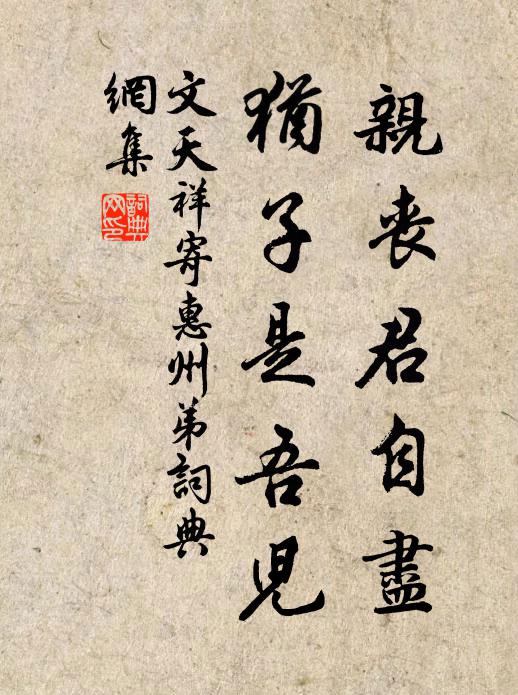 親喪君自盡
猶子是吾兒
文天祥寄惠州弟詞典
網集
詞典
网印